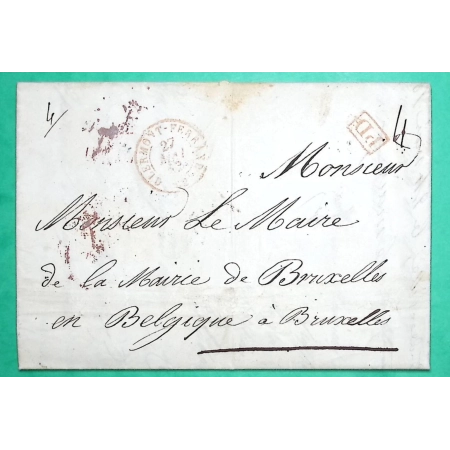 4/
CLERMONT-FERRAND
27
PD
4
Monsieur
Monsieur Le Maire
de la Mairie de Bruxelles
en Belgique à Bruxelles